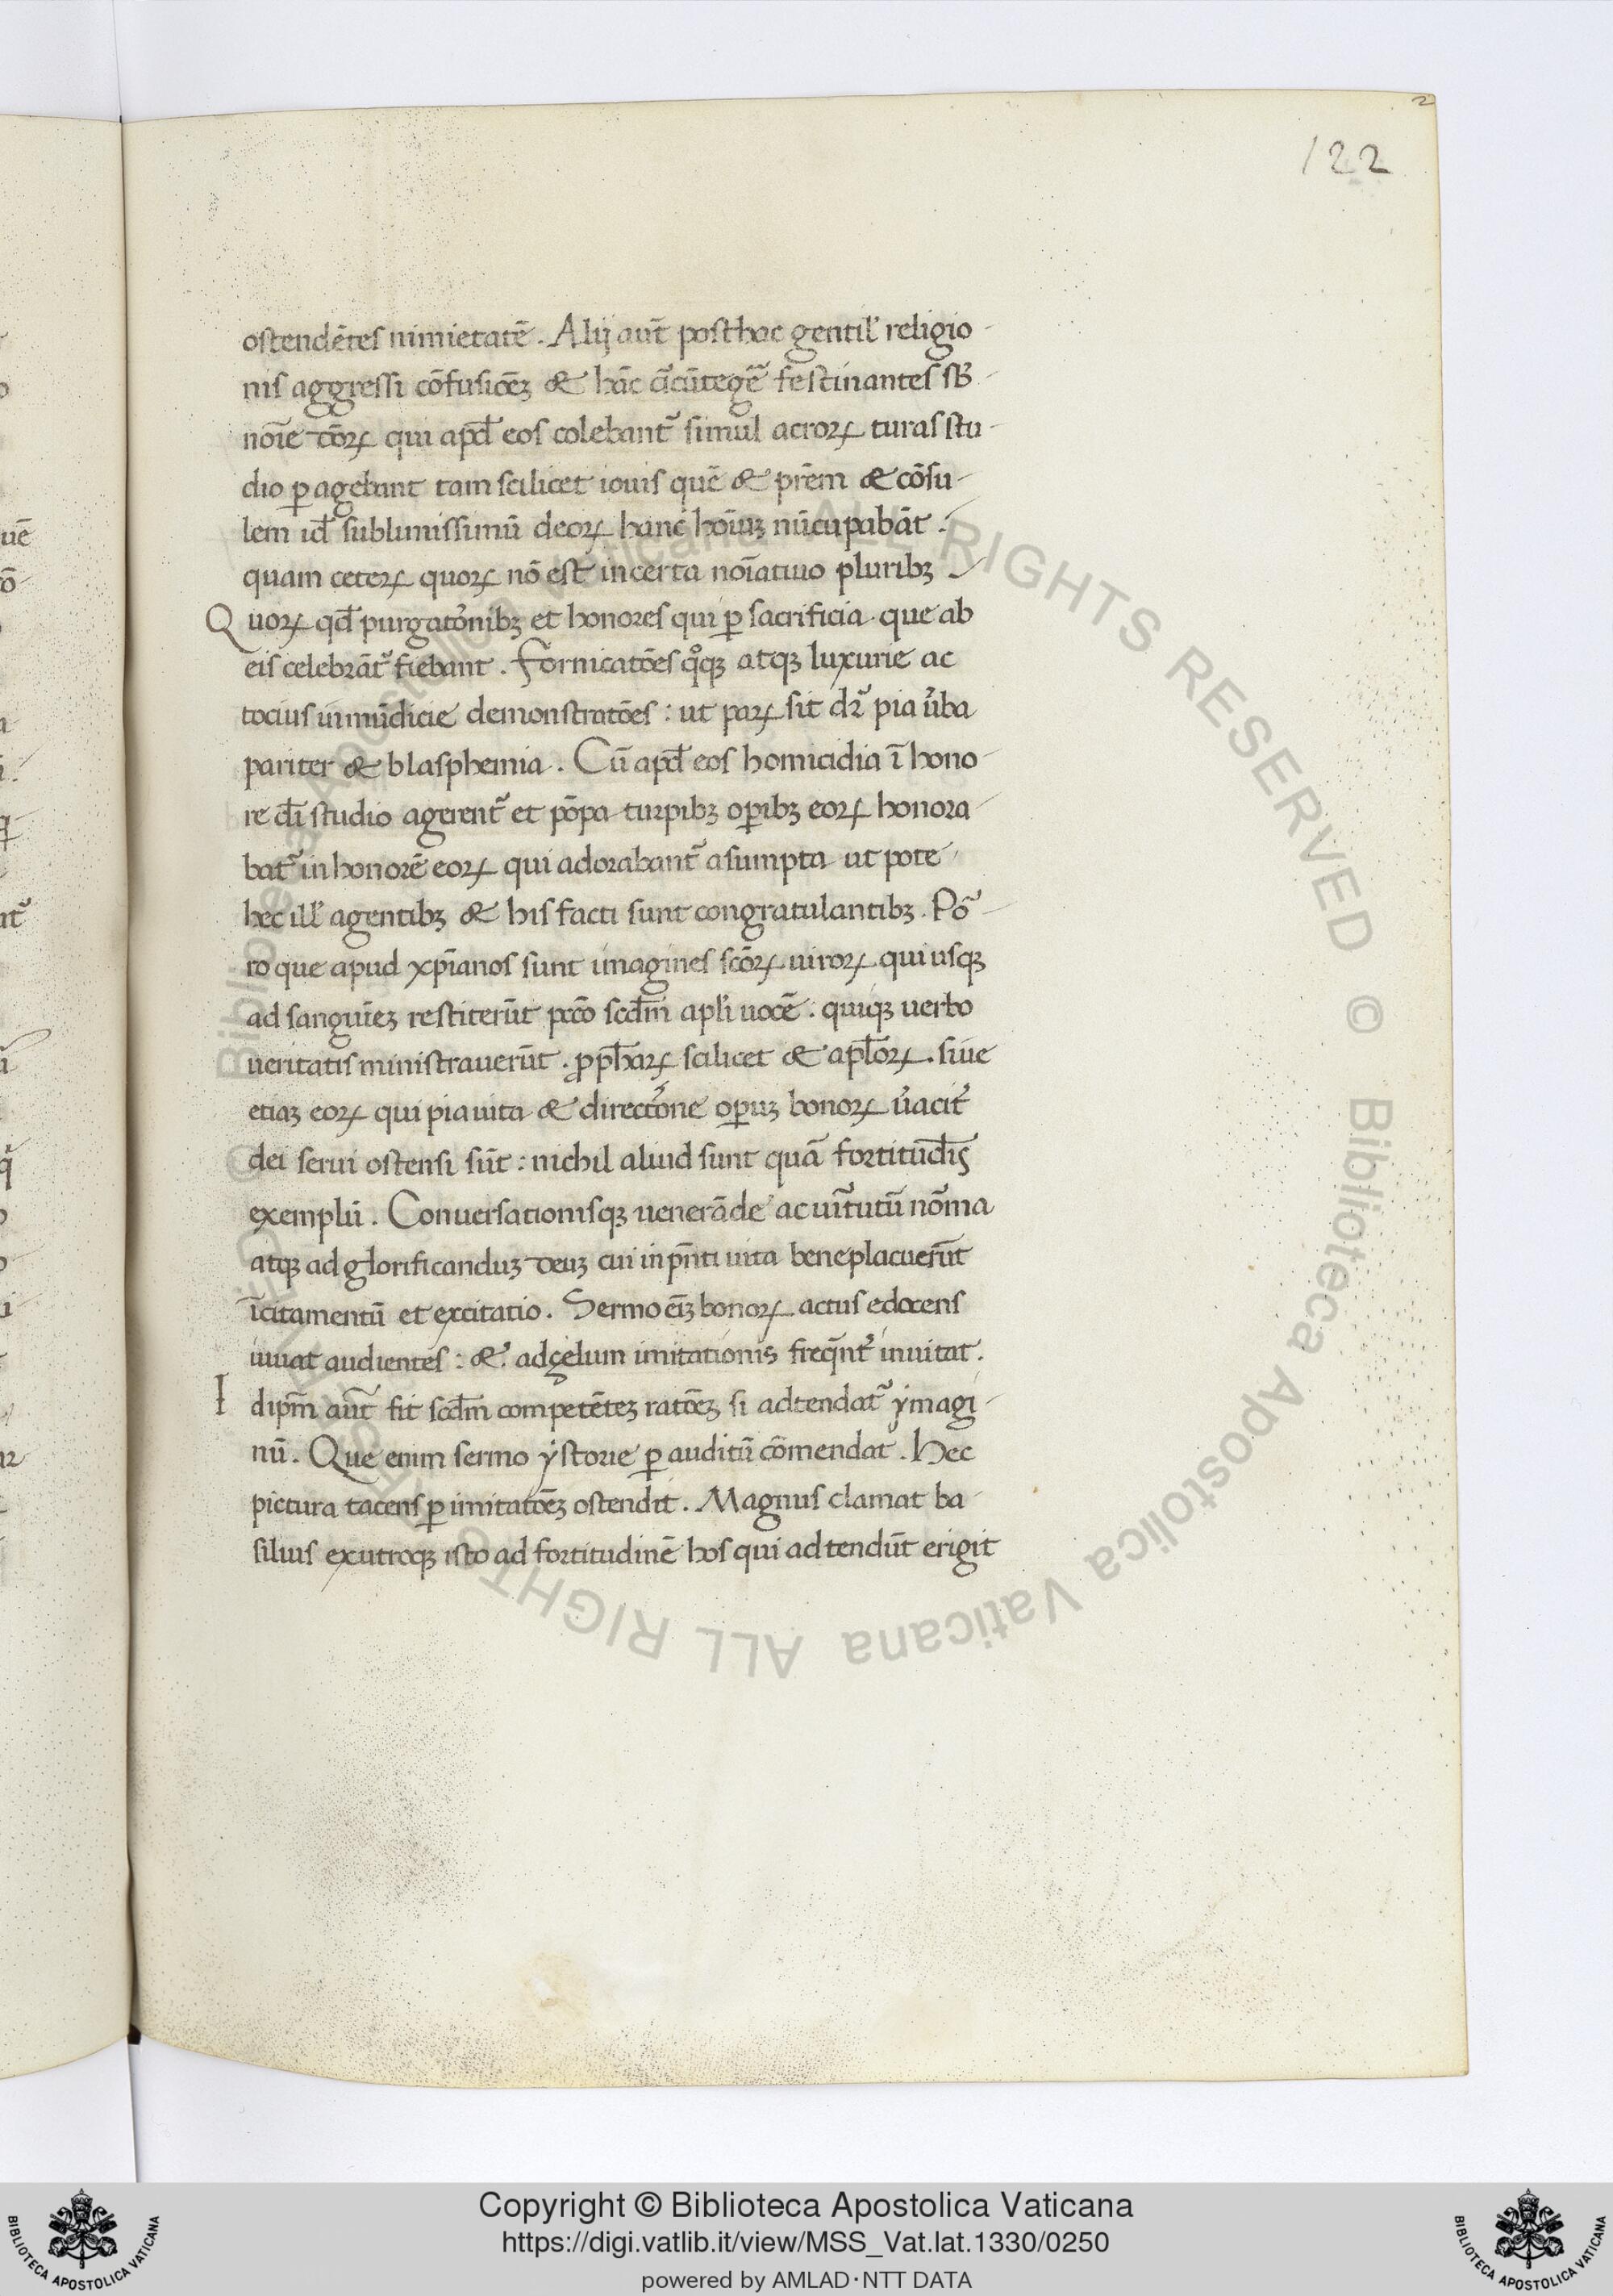 122
2
ostendētes nimietatē. Alij aut̄ post hac gentil' religio-
nis aggressi cōfusioēꝫ & hāc festinantes sb̄-
noīe qui apd̄ eos colebant᷑ simul acroꝝ turas stu-
dio ꝑagebant tam scilicet iouis quē & pr̄em & cōsu-
lem id̄ sublimissimū deoꝝ hanc nūcupabāt.
quam ceteꝝ quoꝝ nō est incerta noīatiuo pluribꝫ
Quoꝝ qd̄ purgatōnibꝫ et honores qui ꝑ sacrificia que ab
eis celebrāt᷑ fiebant. Fornicatōes qͦqꝫ atqꝫ luxurie ac
tocius inmūdicie demonstratōes: ut paꝝ sit dr̄ pia ūba
pariter & blasphemia. Cū apd̄ eos homicidia ī hono-
re dī studio agerent᷑ et pōpa turpibꝫ oꝑibꝫ eoꝝ honora-
bat᷑ in honorē eoꝝ qui adorabant᷑ asumpta ut pote
hec ill' agentibꝫ & his facti sunt congratulantibꝫ. Por-
ro que apud xp̄ianos sunt imagines scōꝝ uiroꝝ qui usqꝫ
ad sanguīeꝫ restiterūt pccō scd̄m apl'i uocē: quiqꝫ uerbo
ueritatis ministrauerūt. ꝓph̄aꝝ scilicet & apl̄oꝝ. siue
etiaꝫ eoꝝ qui pia uita & directōne oꝑuꝫ bonoꝝ ūacit᷑
dei serui ostensi sūt: nichil aliud sunt quā fortitud̄īs
exemplū. Conuersationisqꝫ uenerāde ac uir̄tutū nor̄ma
atqꝫ ad glorificanduꝫ deuꝫ cui in pn̄ti uita beneplacuerūt
īcitamentū et excitatio. Sermo eīꝫ bonoꝝ actus edocens
iuuat audientes: & ad çelum imitationis freqn̄t᷑ inuitat.
Idipm̄ aut̄ fit scd̄m competēteꝫ ratōeꝫ si adtendat᷑ ẏmagi-
nū. Que enim sermo ẏstorie ꝑ auditū cōmendat. Hec
pictura tacens ꝑ imitatōeꝫ ostendit. Magnus clamat ba-
silius ex utroqꝫ isto ad fortitudinē hos qui adtendūt erigit
© Biblioteca Apostolica Vaticana ALL RIGHTS RESERVED © Biblioteca Apostolica Vaticana ALL RIGHTS RESERVED
Copyright © Biblioteca Apostolica Vaticana
https://digi.vatlib.it/view/MSS_Vat.lat.1330/0250
powered by AMLAD·NTT DATA
BIBLIOTECA APOSTOLICA VATICANA
BIBLIOTECA APOSTOLICA VATICANA